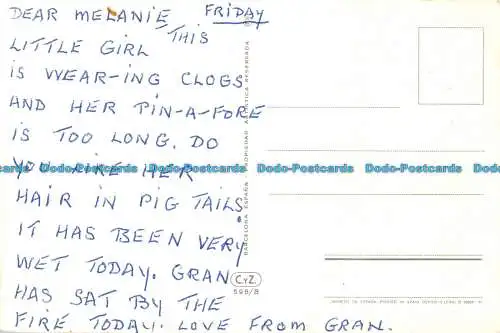 DEAR MELANIE FRIDAY
LITTLE GIRL THIS
IS WEAR-ING CLOGS
AND HER PIN-A-FORE
IS TOO LONG. DO
YOU LIKE HER
HAIR IN PIG TAILS.
IT HAS BEEN VERY
WET TODAY. GRAN
HAS SAT BY THE
FIRE TODAY. LOVE FROM GRAN.
Dodo-Postcards Dodo-Postcards Dodo-Postcards Dodo-Postcards
BARCELONA ESPAÑA PROPIEDAD ARTISTICA RESERVADA
C.yZ.
598/B